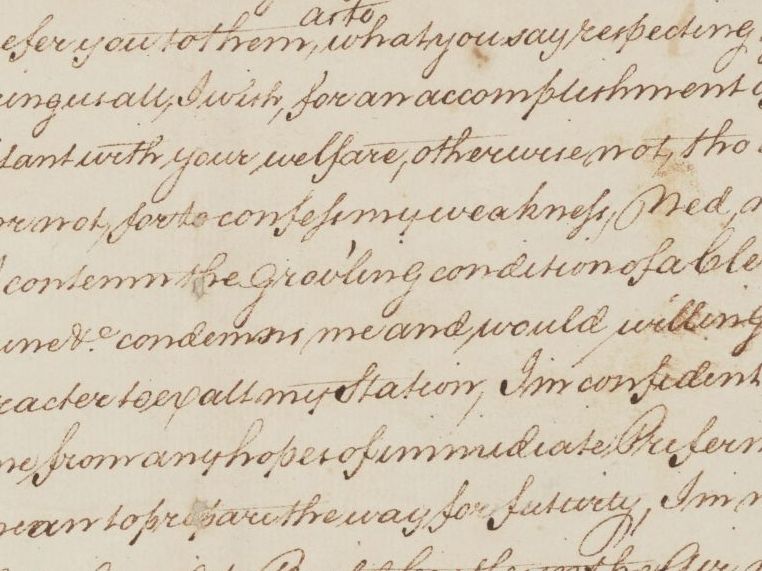 as to
efer you to them, what you say respecting
ing us all, I wish, for an accomplishment
stant with your welfare, otherwise not, tho
or not, for to confess my weakness, Ned,
contemn the grov'ling condition of a Cle
une &c. condemns me and would willing
racter to exalt my Station, I'm confident
me from any hopes of immediate Preferm
mean to prepare the way for futurity, I'm n